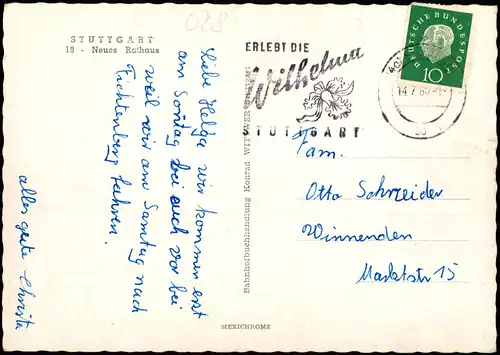 028
STUTTGART
18 - Neues Rathaus
Liebe Helga wir kommen erst
am Sonntag bei euch vor bei
weil wir am Samstag nach
Fichtenberg fahren.
alles gute Christa
ERLEBT DIE
Wilhelma
STUTTGART
DEUTSCHE BUNDESPOST
10
14.7.60
Bahnhofbuchhandlung Konrad WITTWER Stuttgart
MEXICHROME
Fam.
Otto Schneider
Winnenden
Marktstr 15